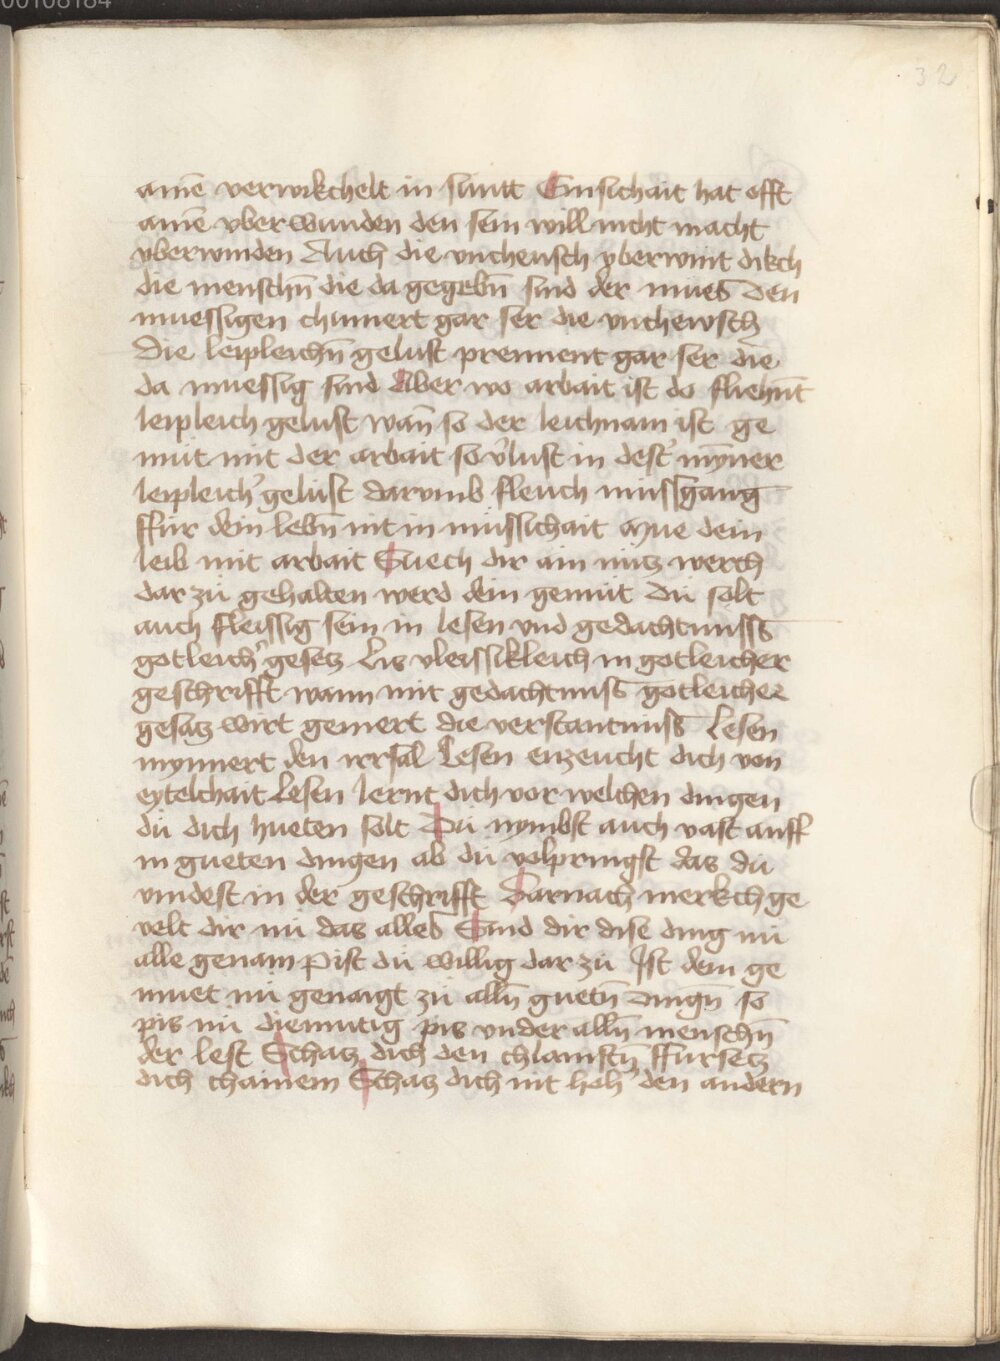 00108184
32
ainē verwikchelt in sunt Emsichait hat offt
ainē vber wunden den sein will nicht macht
vberwinden Auch die vnchewsch vberwint dikch
die menschn̄ die da gegebn̄ sind der mues Den
muessigen chumert gar ser die vnchewsch
Die leipleichn̄ gelust prennent gar ser die
da muessig sind Aber wo arbait ist do fliehn̄t
leipleich gelust wan̄ so der leichnam ist ge
müt mit der arbait so v̓lust in dest̓ mÿner
leipleich̓ gelust darumb fleuch müssgang
ffür dein lebn̄ nit in müssichait Mue dein
leib mit arbait Suech dir ain nütz werch
dar zü gehalten werd dein gemüt Dü solt
auch fleissig sein in lesen vnd gedachtnuss
gotleich̓ gesetz Lis vleissikleich in gotleicher
geschrifft wann mit gedachtnuss gotleicher
gesatz wirt gemert die verstantnuss Lesen
mynnert den irrsal Lesen enzeucht dich von
eytelchait Lesen lernt dich vor welchen dingen
dü dich hueten solt Dü nymbst auch vast auff
in gueten dingen ab dü volpringst das dü
vindest in der geschrifft Darnach merkch ge
velt dir nü das alles Sind dir dise ding nü
alle genam Pist dü willig dar zü Ist dein ge
muet nü genaigt zü alln̄ guetn̄ dingn̄ so
pis nü diemutig pis vnder alln̄ menschn̄
der lest Schatz dich den chlainstn̄ ffürsetz
dich chainem Schatz dich nit hoh̓ den andern